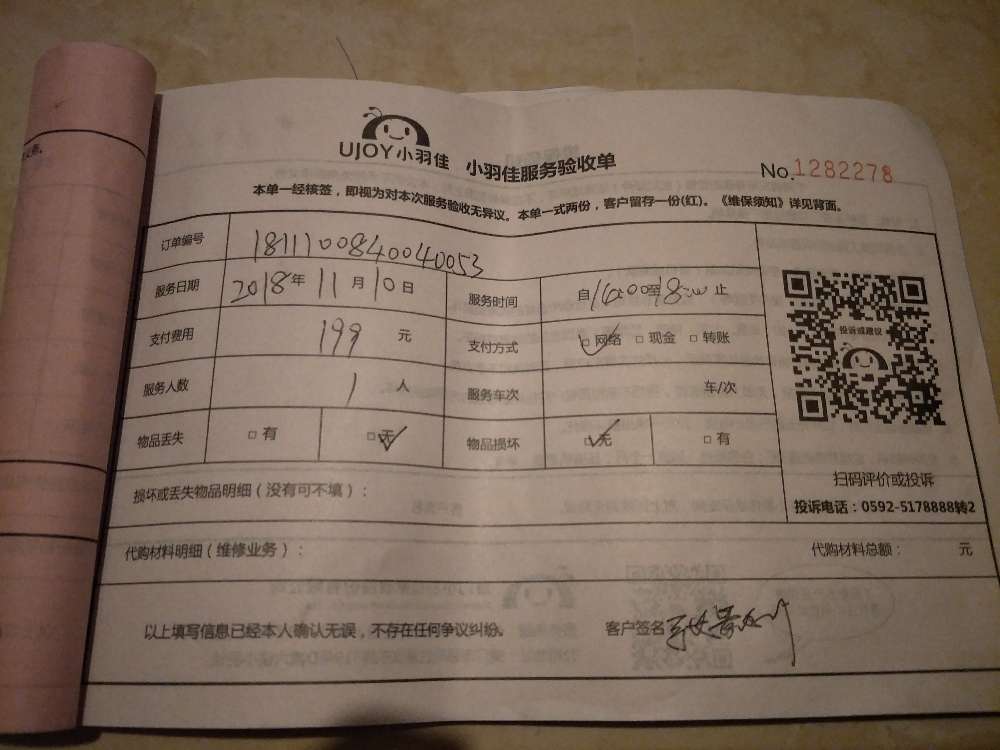 UJOY小羽佳 小羽佳服务验收单 No.1282278
本单一经核签，即视为对本次服务验收无异议。本单一式两份，客户留存一份(红)。《维保须知》详见背面。
订单编号 1811100840040053
服务日期 2018年11月10日 服务时间 自16:00至18:00止
支付费用 199 元 支付方式 □网络 □现金 □转账
服务人数 1 人 服务车次 车/次
物品丢失 □有 □无 物品损坏 □无 □有
投诉或建议
扫码评价或投诉
投诉电话：0592-5178888转2
损坏或丢失物品明细（没有可不填）：
代购材料明细（维修业务）： 代购材料总额： 元
以上填写信息已经本人确认无误，不存在任何争议纠纷。 客户签名